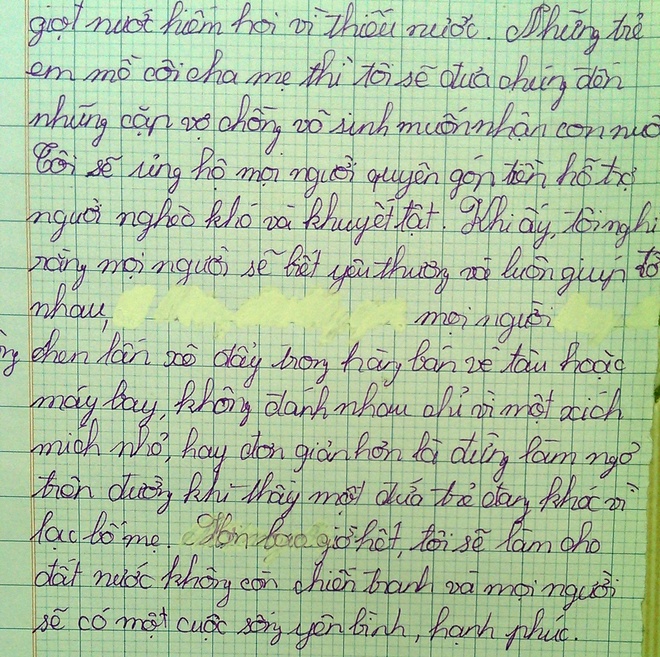 giọt nước hiếm hoi vì thiếu nước. Những trẻ
em mồ côi cha mẹ thì tôi sẽ đưa chúng đến
những cặp vợ chồng vô sinh muốn nhận con nuô
Tôi sẽ ủng hộ mọi người quyên góp tiền hỗ trợ
người nghèo khó và khuyết tật. Khi ấy, tôi nghi
rằng mọi người sẽ biết yêu thương và luôn giúp đỡ
nhau, mọi người
ng chen lấn xô đẩy trong hàng bán vé tàu hoặc
máy bay, không đánh nhau chỉ vì một xích
mích nhỏ, hay đơn giản hơn là đừng làm ngơ
trên đường khi thấy một đứa trẻ đang khóc vì
lạc bố mẹ. Hơn bao giờ hết, tôi sẽ làm cho
đất nước không còn chiến tranh và mọi người
sẽ có một cuộc sống yên bình, hạnh phúc.